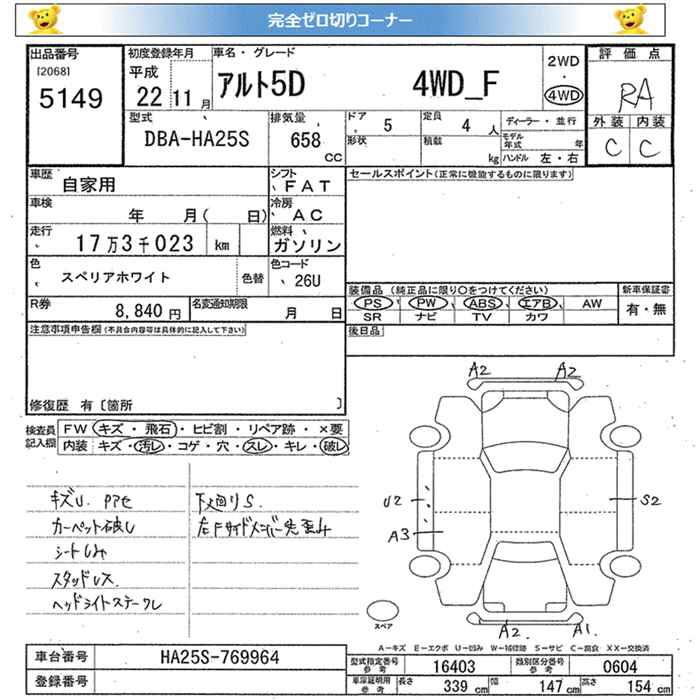 完全ゼロ切りコーナー
出品番号
[2068]
5149
初度登録年月
平成
22 11月
車名・グレード
アルト5D 4WD_F
2WD
・
4WD
評価点
RA
外装 内装
C C
型式
DBA-HA25S
排気量
658
CC
ドア
5
形状
定員
4 人
積載
kg
ディーラー・並行
モデル
年式 年
ハンドル 左・右
車歴
自家用
シフト
FAT
車検
年 月( 日)
冷房
AC
走行
17万3千023 km
燃料
ガソリン
色
スペリアホワイト
色替
色コード
26U
R券
8,840円
名変通知期限
月 日
セールスポイント(正常に機能するものに限ります)
装備品 (純正品に限り○をつけてください)
PS PW ABS エアB AW
SR ナビ TV カワ
新車保証書
有・無
後日品
注意事項申告欄(不具合内容等は具体的に記入して下さい)
修復歴 有〔箇所 〕
検査員
記入欄
FW キズ・飛石・ヒビ割・リペア跡・×要
内装 キズ・汚レ・コゲ・穴・スレ・キレ・破レ
キズU. PPセ
カーペット破レ
シートシみ
スタッドレス.
ヘッドライトステークレ
下廻りS.
左Fサイドメンバー先歪み
A2 A2
U2
A3
S2
A2 A1
スペア
A−キズ E−エクボ U−凹み W−補修跡 S−サビ C−腐食 XX−交換済
車台番号
HA25S-769964
登録番号
型式指定番号
参考
16403
類別区分番号
参考
0604
車庫証明用
参考
長さ 339 cm
幅 147 cm
高さ 154 cm